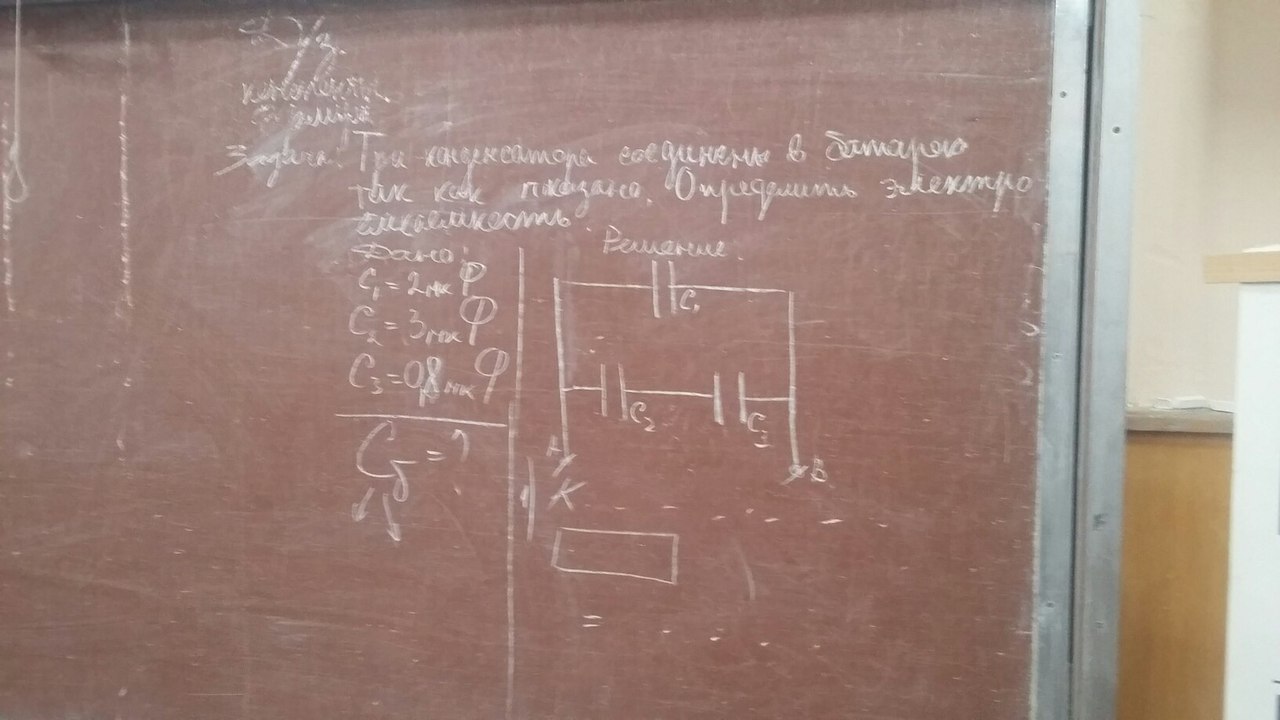 Д/з.
Задача: Три конденсатора соединены в батарею
так как показано. Определить электро
ёмкость
Дано:
Решение.
C₁ = 2 мк Ф
C₂ = 3 мк Ф
C₃ = 0,8 мк Ф
Cб = ?
C₁
C₂
C₃
A
B
K
=